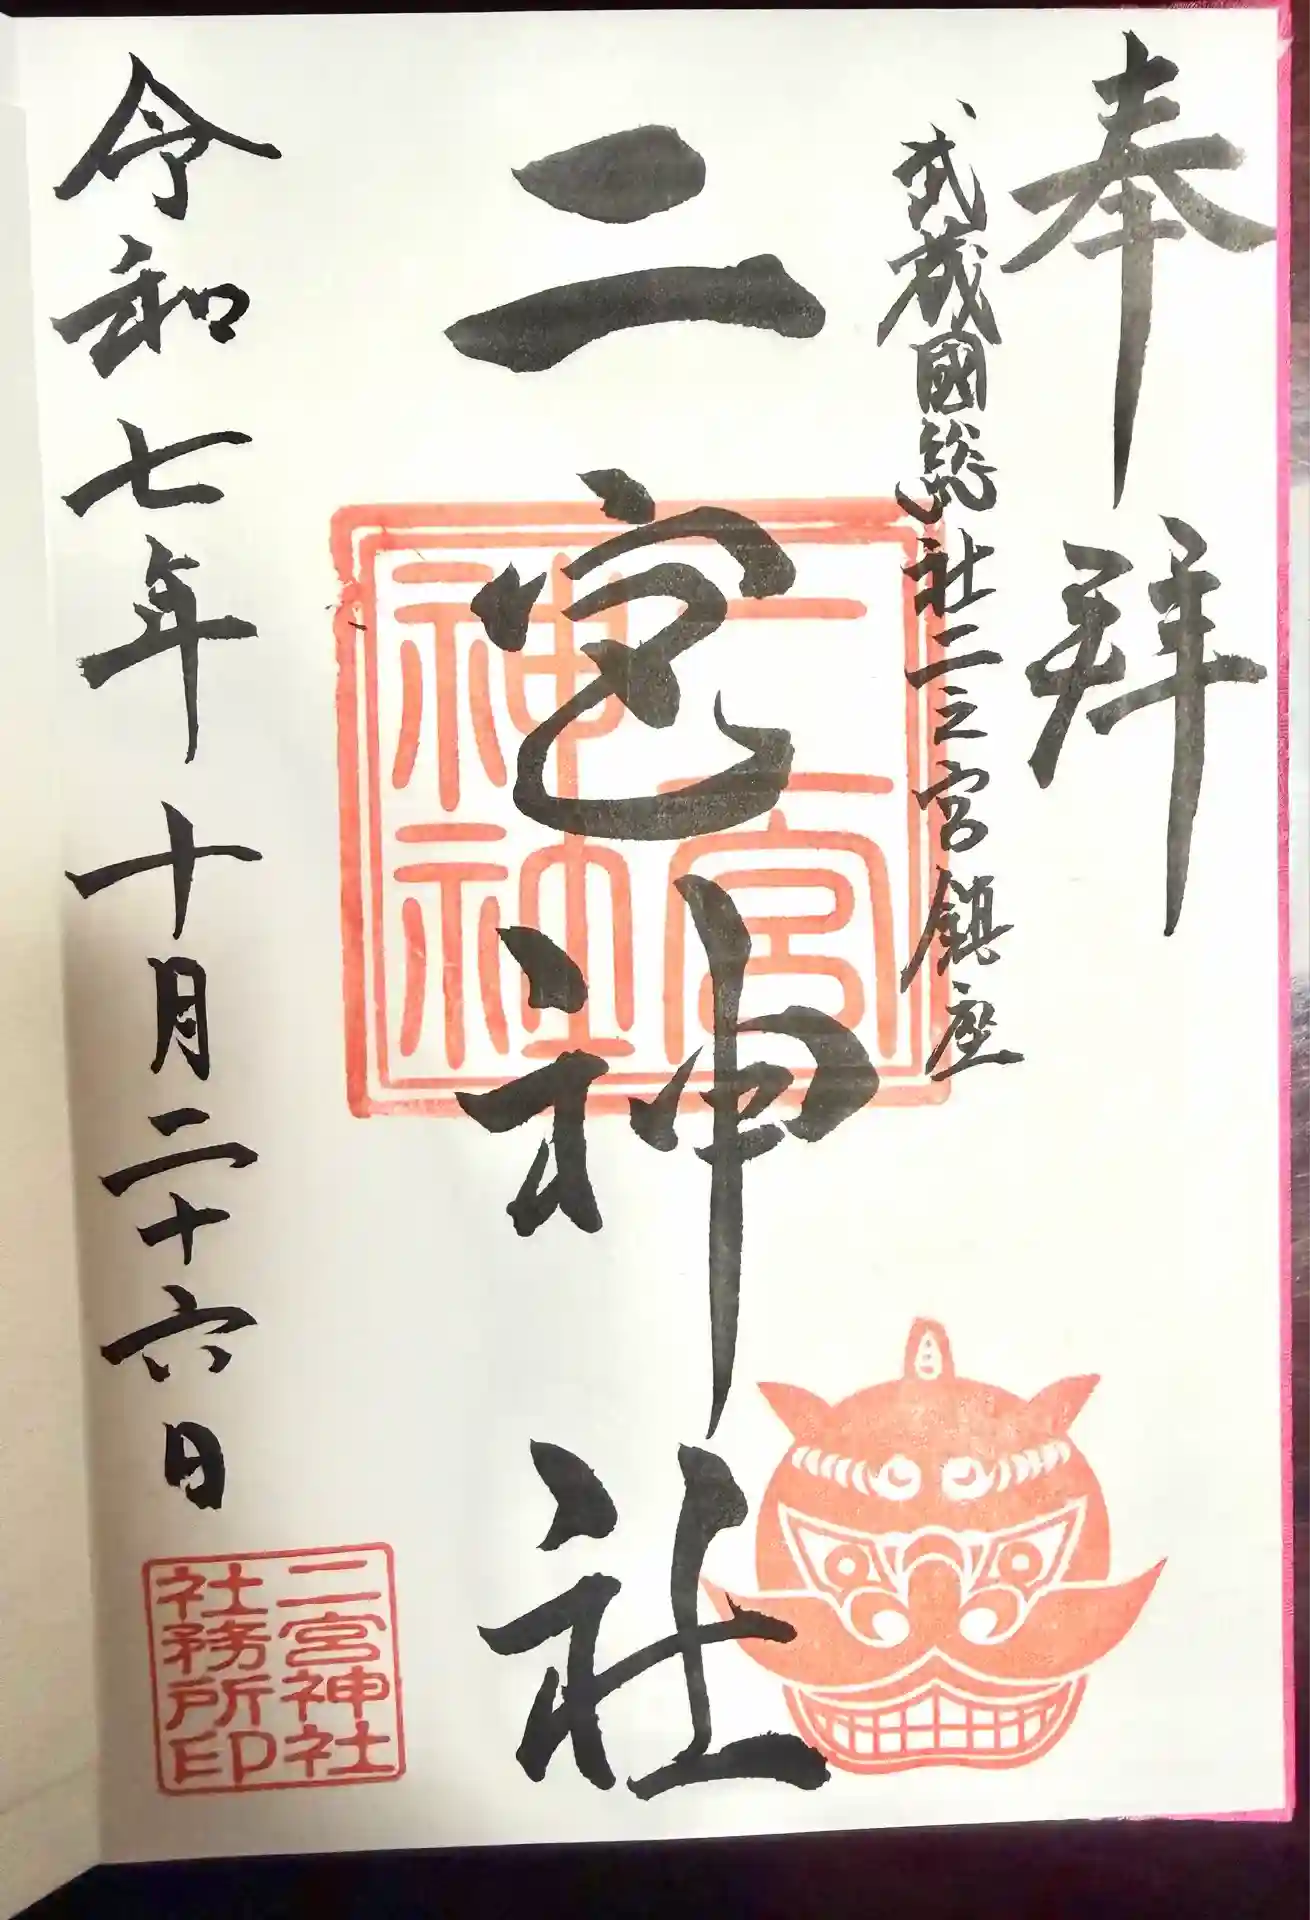 奉拜
武蔵國総社二之宮鎮座
二宮神社
二宮神社
令和七年十月二十六日
二宮神社
社務所印